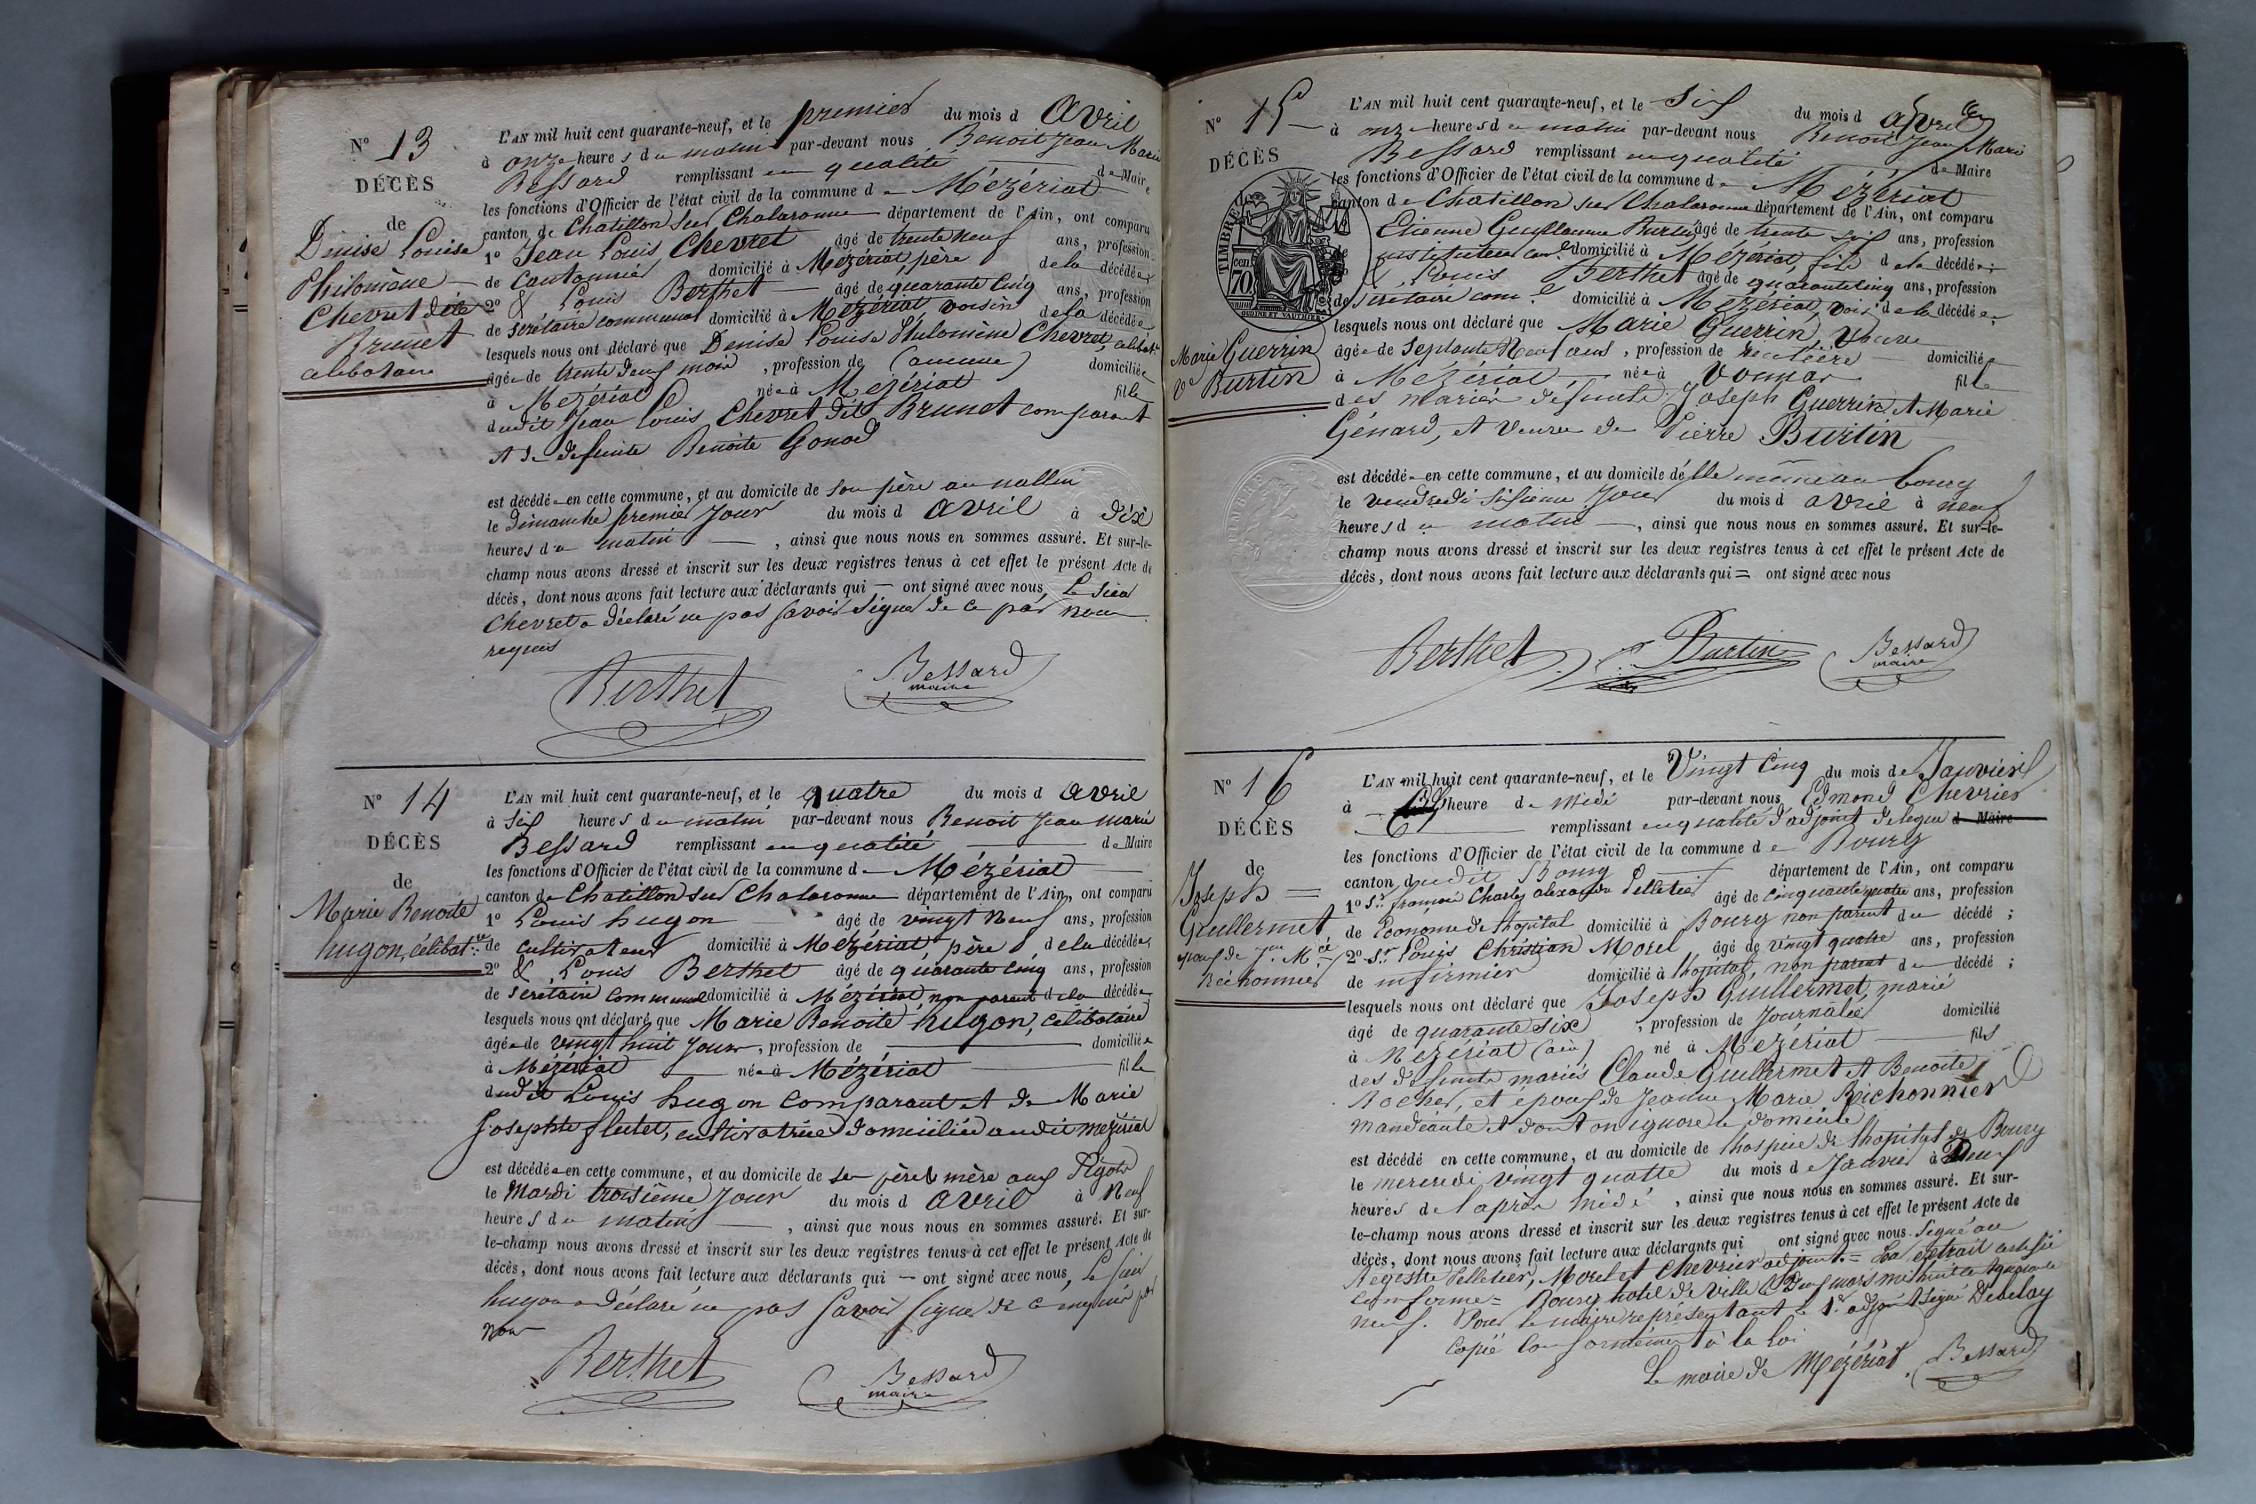 N° 13
DÉCÈS
de
Denise Louise
Philomène
Chevret dite
Brunet
célibataire
L'AN mil huit cent quarante-neuf, et le premier du mois d avril
à onze heures du matin par-devant nous Benoit Jean Marie
Bessard remplissant en qualité de Maire
les fonctions d'Officier de l'état civil de la commune de Mézériat
canton de Chatillon sur Chalaronne département de l'Ain, ont comparu
1° Jean Louis Chevret âgé de trente neuf ans, profession
de cantonnier domicilié à Mézériat, père de la décédée
2° & Louis Berthet âgé de quarante cinq ans, profession
de secrétaire communal domicilié à Mézériat, voisin de la décédée
lesquels nous ont déclaré que Denise Louise Philomène Chevret, célibat.re
âgée de trente deux mois, profession de (aucune) domiciliée
à Mézériat née à Mézériat fille
dudit Jean Louis Chevret dit Brunet comparant
et de défunte Benoite Gonod
est décédée en cette commune, et au domicile de son père au
le dimanche premier jour du mois d avril à dix
heures du matin , ainsi que nous nous en sommes assuré. Et sur-le-
champ nous avons dressé et inscrit sur les deux registres tenus à cet effet le présent Acte de
décès, dont nous avons fait lecture aux déclarants qui — ont signé avec nous, Le sieur
Chevret a déclaré ne pas savoir signer de ce par nous
requis
Berthet Bessard
maire
N° 14
DÉCÈS
de
Marie Benoite
hugon, célibat.re
L'AN mil huit cent quarante-neuf, et le quatre du mois d avril
à six heures du matin par-devant nous Benoit Jean Marie
Bessard remplissant en qualité de Maire
les fonctions d'Officier de l'état civil de la commune de Mézériat
canton de Chatillon sur Chalaronne département de l'Ain, ont comparu
1° Louis hugon âgé de vingt neuf ans, profession
de cultivateur domicilié à Mézériat, père de la décédée
2° & Louis Berthet âgé de quarante cinq ans, profession
de secrétaire communal domicilié à Mézériat, non parent de la décédée
lesquels nous ont déclaré que Marie Benoite hugon, célibataire
âgée de vingt huit jours, profession de domiciliée
à Mézériat née à Mézériat fille
dudit Louis hugon comparant et de Marie
Josephte flutet, cultivatrice domiciliée audit mézériat
est décédée en cette commune, et au domicile de ses père & mère aux
le Mardi troisième jour du mois d avril à Neuf
heures du matin , ainsi que nous nous en sommes assuré. Et sur-
le-champ nous avons dressé et inscrit sur les deux registres tenus à cet effet le présent Acte de
décès, dont nous avons fait lecture aux déclarants qui — ont signé avec nous, Le sieur
hugon a déclaré ne pas savoir signer de ce requis par
nous
Berthet Bessard
maire
N° 15
DÉCÈS
TIMBRE
70
Marie Guerrin
Ve Burtin
L'AN mil huit cent quarante-neuf, et le Six du mois d avril
à onze heures du matin par-devant nous Benoit Jean Marie
Bessard remplissant en qualité de Maire
les fonctions d'Officier de l'état civil de la commune de Mézériat
canton de Chatillon sur Chalaronne département de l'Ain, ont comparu
Etienne Guillaume Burtin âgé de trente six ans, profession
instituteur com.l domicilié à Mézériat, fils de la décédée;
& Louis Berthet âgé de quarante cinq ans, profession
de secrétaire com.l domicilié à Mézériat, vois.n de la décédée;
lesquels nous ont déclaré que Marie Guerrin, Veuve
âgée de Septante Neuf ans, profession de rentière domiciliée
à Mézériat née à Vonnas fille
des mariés défunts Joseph Guerrin et Marie
Génard, et veuve de Pierre Burtin
est décédée en cette commune, et au domicile d'elle même au bourg
le vendredi sixième jour du mois d avril à neuf
heures du matin , ainsi que nous nous en sommes assuré. Et sur-le-
champ nous avons dressé et inscrit sur les deux registres tenus à cet effet le présent Acte de
décès, dont nous avons fait lecture aux déclarants qui = ont signé avec nous
Berthet Burtin Bessard
maire
N° 16
DÉCÈS
de
Joseph
Guillermet,
époux de J.ne M.ie
Réchonnier
L'AN mil huit cent quarante-neuf, et le Vingt Cinq du mois de Janvier
à heure de midi par-devant nous Edmond Chevrier
remplissant en qualité d'adjoint délégué d Maire
les fonctions d'Officier de l'état civil de la commune de Bourg
canton dudit Bourg département de l'Ain, ont comparu
1° S.r françois Charles alexandre Pelletier âgé de cinquante quatre ans, profession
de Econome de l'hopital domicilié à Bourg non parent du décédé ;
2° S.r Louis Christian Morel âgé de vingt quatre ans, profession
de infirmier domicilié à l'hopital, non parent du décédé ;
lesquels nous ont déclaré que Joseph Guillermet, marié
âgé de quarante six , profession de Journalier domicilié
à Mézériat (ain) né à Mézériat fils
des défunts mariés Claude Guillermet et Benoite
Rocher, et époux de Jeanne Marie Réichonnier
mandiante et dont on ignore le domicile
est décédé en cette commune, et au domicile de l'hospice de l'hopital de Bourg
le mercredi vingt quatre du mois de Janvier à Deux
heures de l'après midi , ainsi que nous nous en sommes assuré. Et sur-
le-champ nous avons dressé et inscrit sur les deux registres tenus à cet effet le présent Acte de
décès, dont nous avons fait lecture aux déclarants qui ont signé avec nous. Signé au
Registre Pelletier, Morel et Chevrier adjoint = extrait certifié
conforme = Bourg hotel de Ville mars mil huit cent quarante
neuf. Pour le maire représentant le 1.er adjoint signé
copié conformément à la loi
Le maire de Mézériat Bessard